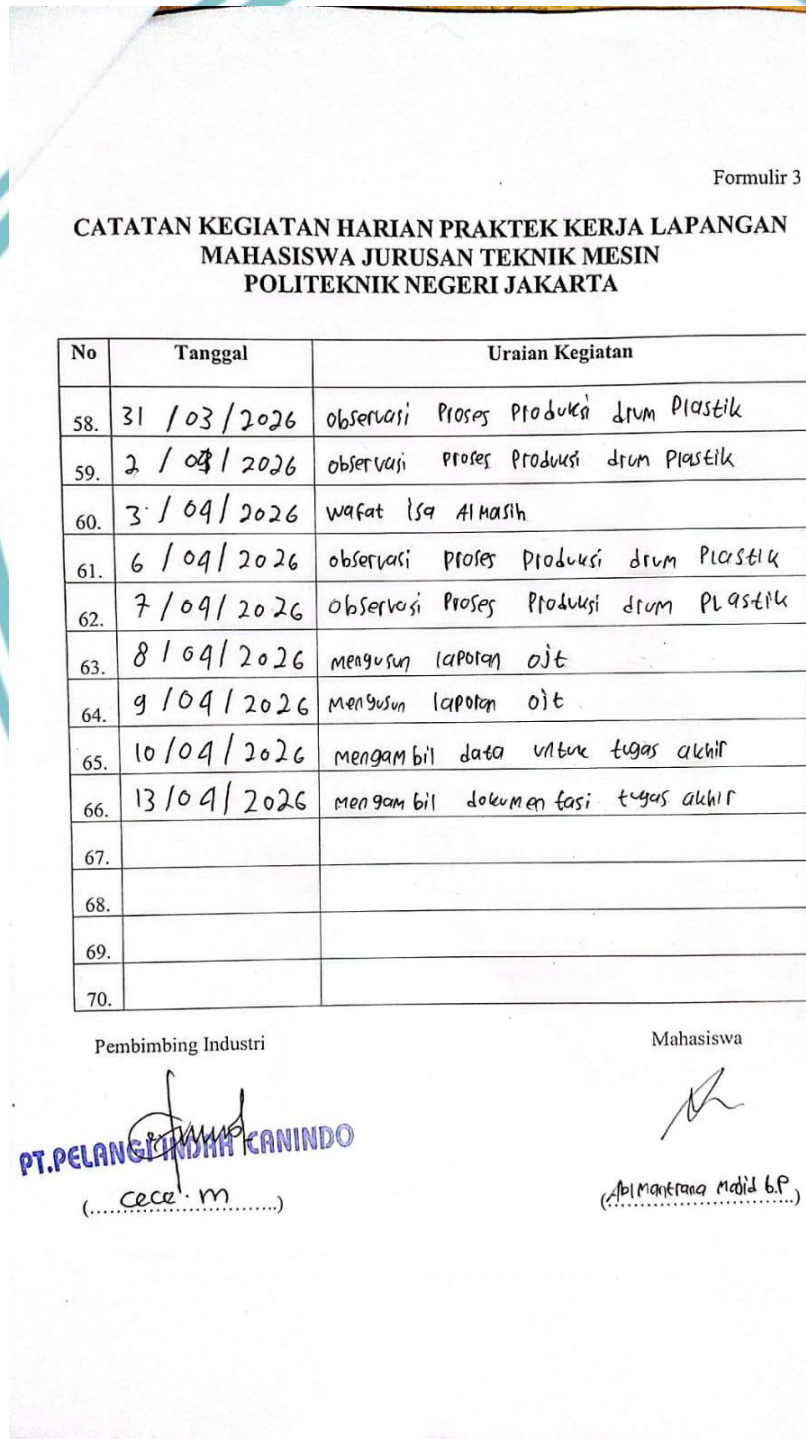 Formulir 3
CATATAN KEGIATAN HARIAN PRAKTEK KERJA LAPANGAN
MAHASISWA JURUSAN TEKNIK MESIN
POLITEKNIK NEGERI JAKARTA
No Tanggal Uraian Kegiatan
58. 31 / 03 / 2026 observasi Proses Produksi drum Plastik
59. 2 / 04 / 2026 observasi proses Produksi drum Plastik
60. 3 / 04 / 2026 wafat isa Al Masih
61. 6 / 04 / 2026 observasi proses Produksi drum Plastik
62. 7 / 04 / 2026 observasi Proses Produksi drum PLastik
63. 8 / 04 / 2026 mengusun laporan ojt
64. 9 / 04 / 2026 mengusun laporan ojt
65. 10 / 04 / 2026 mengambil data untuk tugas akhir
66. 13 / 04 / 2026 mengambil dokumentasi tugas akhir
67.
68.
69.
70.
Pembimbing Industri Mahasiswa
PT.PELANGI INDAH CANINDO
(cece. m)